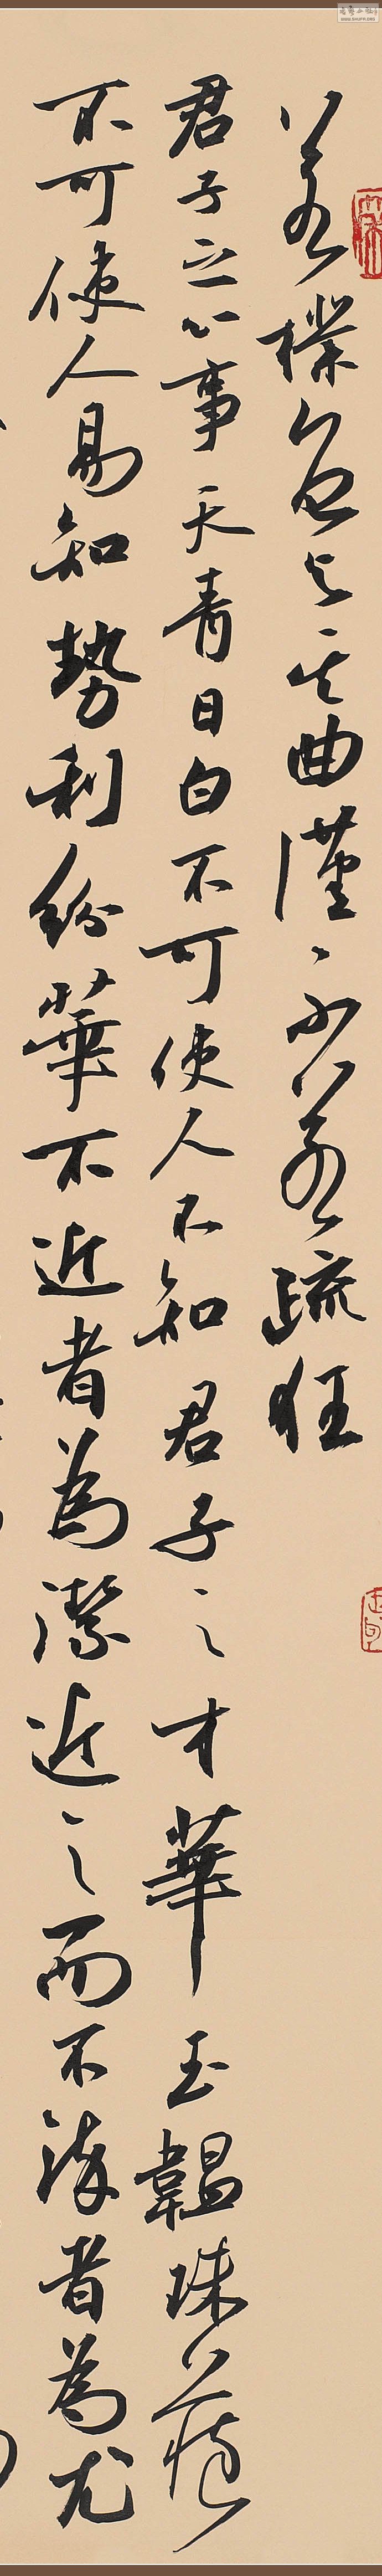 若樸魯与其曲謹不若疏狂
君子之心事天青日白不可使人不知君子之才華玉韞珠藏
不可使人易知勢利紛華不近者為潔近之而不染者為尤